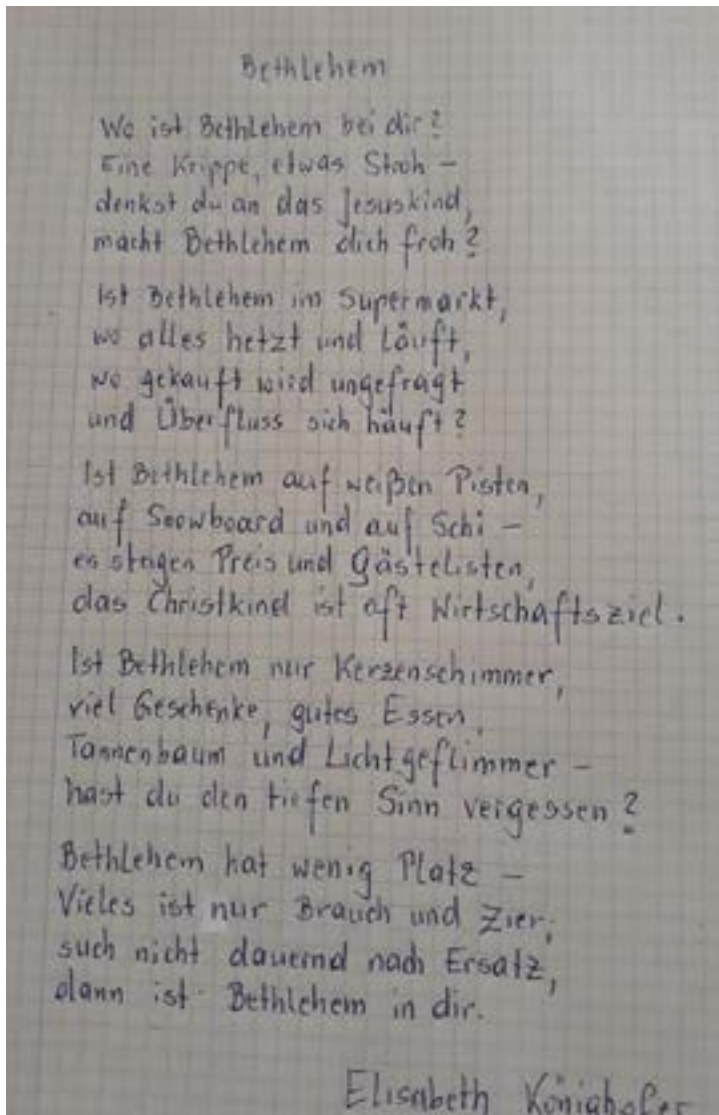 Bethlehem
Wo ist Bethlehem bei dir?
Eine Krippe, etwas Stroh –
denkst du an das Jesuskind,
macht Bethlehem dich froh?
Ist Bethlehem im Supermarkt,
wo alles hetzt und läuft,
wo gekauft wird ungefragt
und Überfluss sich häuft?
Ist Bethlehem auf weißen Pisten,
auf Snowboard und auf Schi –
es steigen Preis und Gästelisten,
das Christkind ist oft Wirtschaftsziel.
Ist Bethlehem nur Kerzenschimmer,
viel Geschenke, gutes Essen,
Tannenbaum und Lichtgeflimmer –
hast du den tiefen Sinn vergessen?
Bethlehem hat wenig Platz –
Vieles ist nur Brauch und Zier;
such nicht dauernd nach Ersatz,
dann ist Bethlehem in dir.
Elisabeth Könighofer